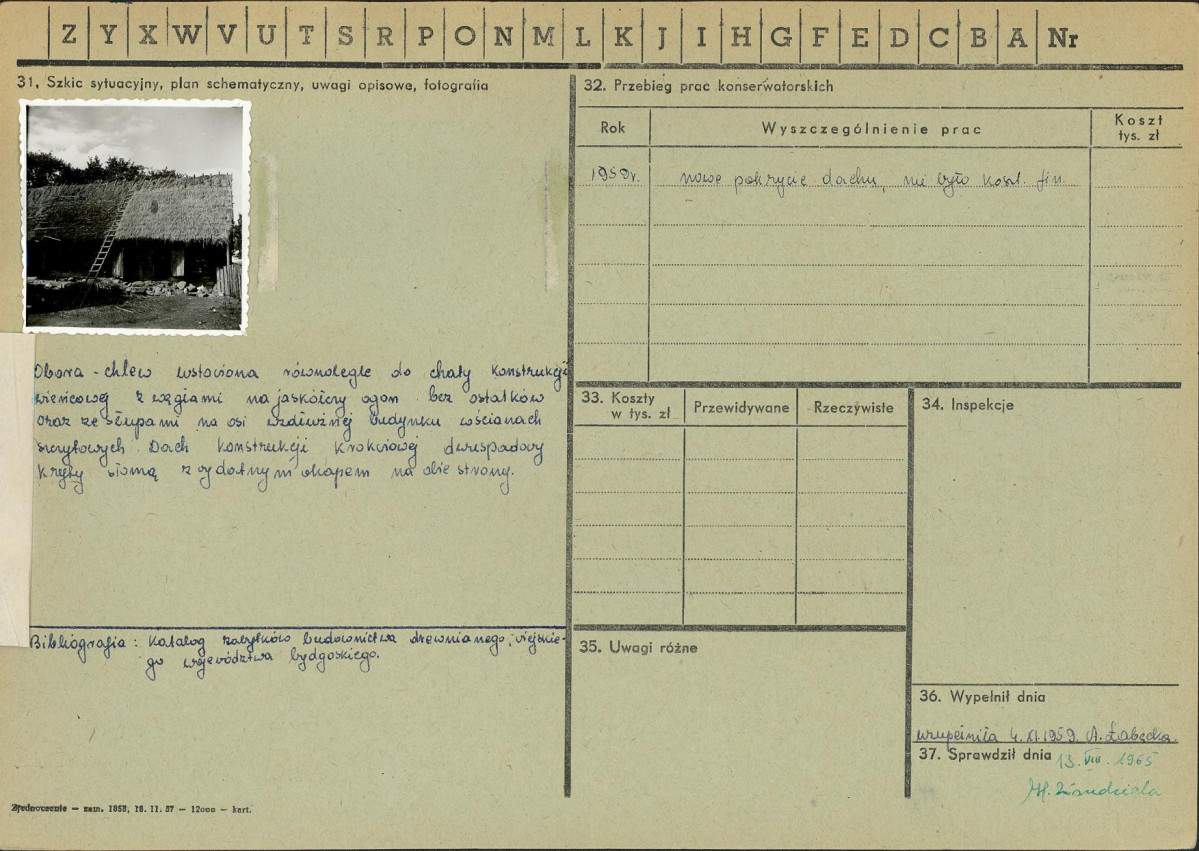 Z Y X W V U T S R P O N M L K J I H G F E D C B A Nr
31. Szkic sytuacyjny, plan schematyczny, uwagi opisowe, fotografia
Obora - chlew ustawiona równolegle do chaty konstrukcji
wieńcowej z węgłami na jaskółczy ogon bez ostatków
oraz ze słupami na osi wzdłużnej budynku w ścianach
szczytowych. Dach konstrukcji krokwiowej dwuspadowy
kryty słomą z wydatnym okapem na obie strony.
Bibliografia: Katalog zabytków budownictwa drewnianego, wiejskie-
go województwa bydgoskiego.
Zjednoczenie — zam. 1858, 18. 11. 57 — 12000 — kart.
32. Przebieg prac konserwatorskich
Rok Wyszczególnienie prac Koszt
tys. zł
1959r. nowe pokrycie dachu, nie było koszt. fin.
33. Koszty
w tys. zł Przewidywane Rzeczywiste
34. Inspekcje
35. Uwagi różne
36. Wypełnił dnia
uzupełniła 4.XI.1959. A. Łabęcka
37. Sprawdził dnia 13. VIII. 1965